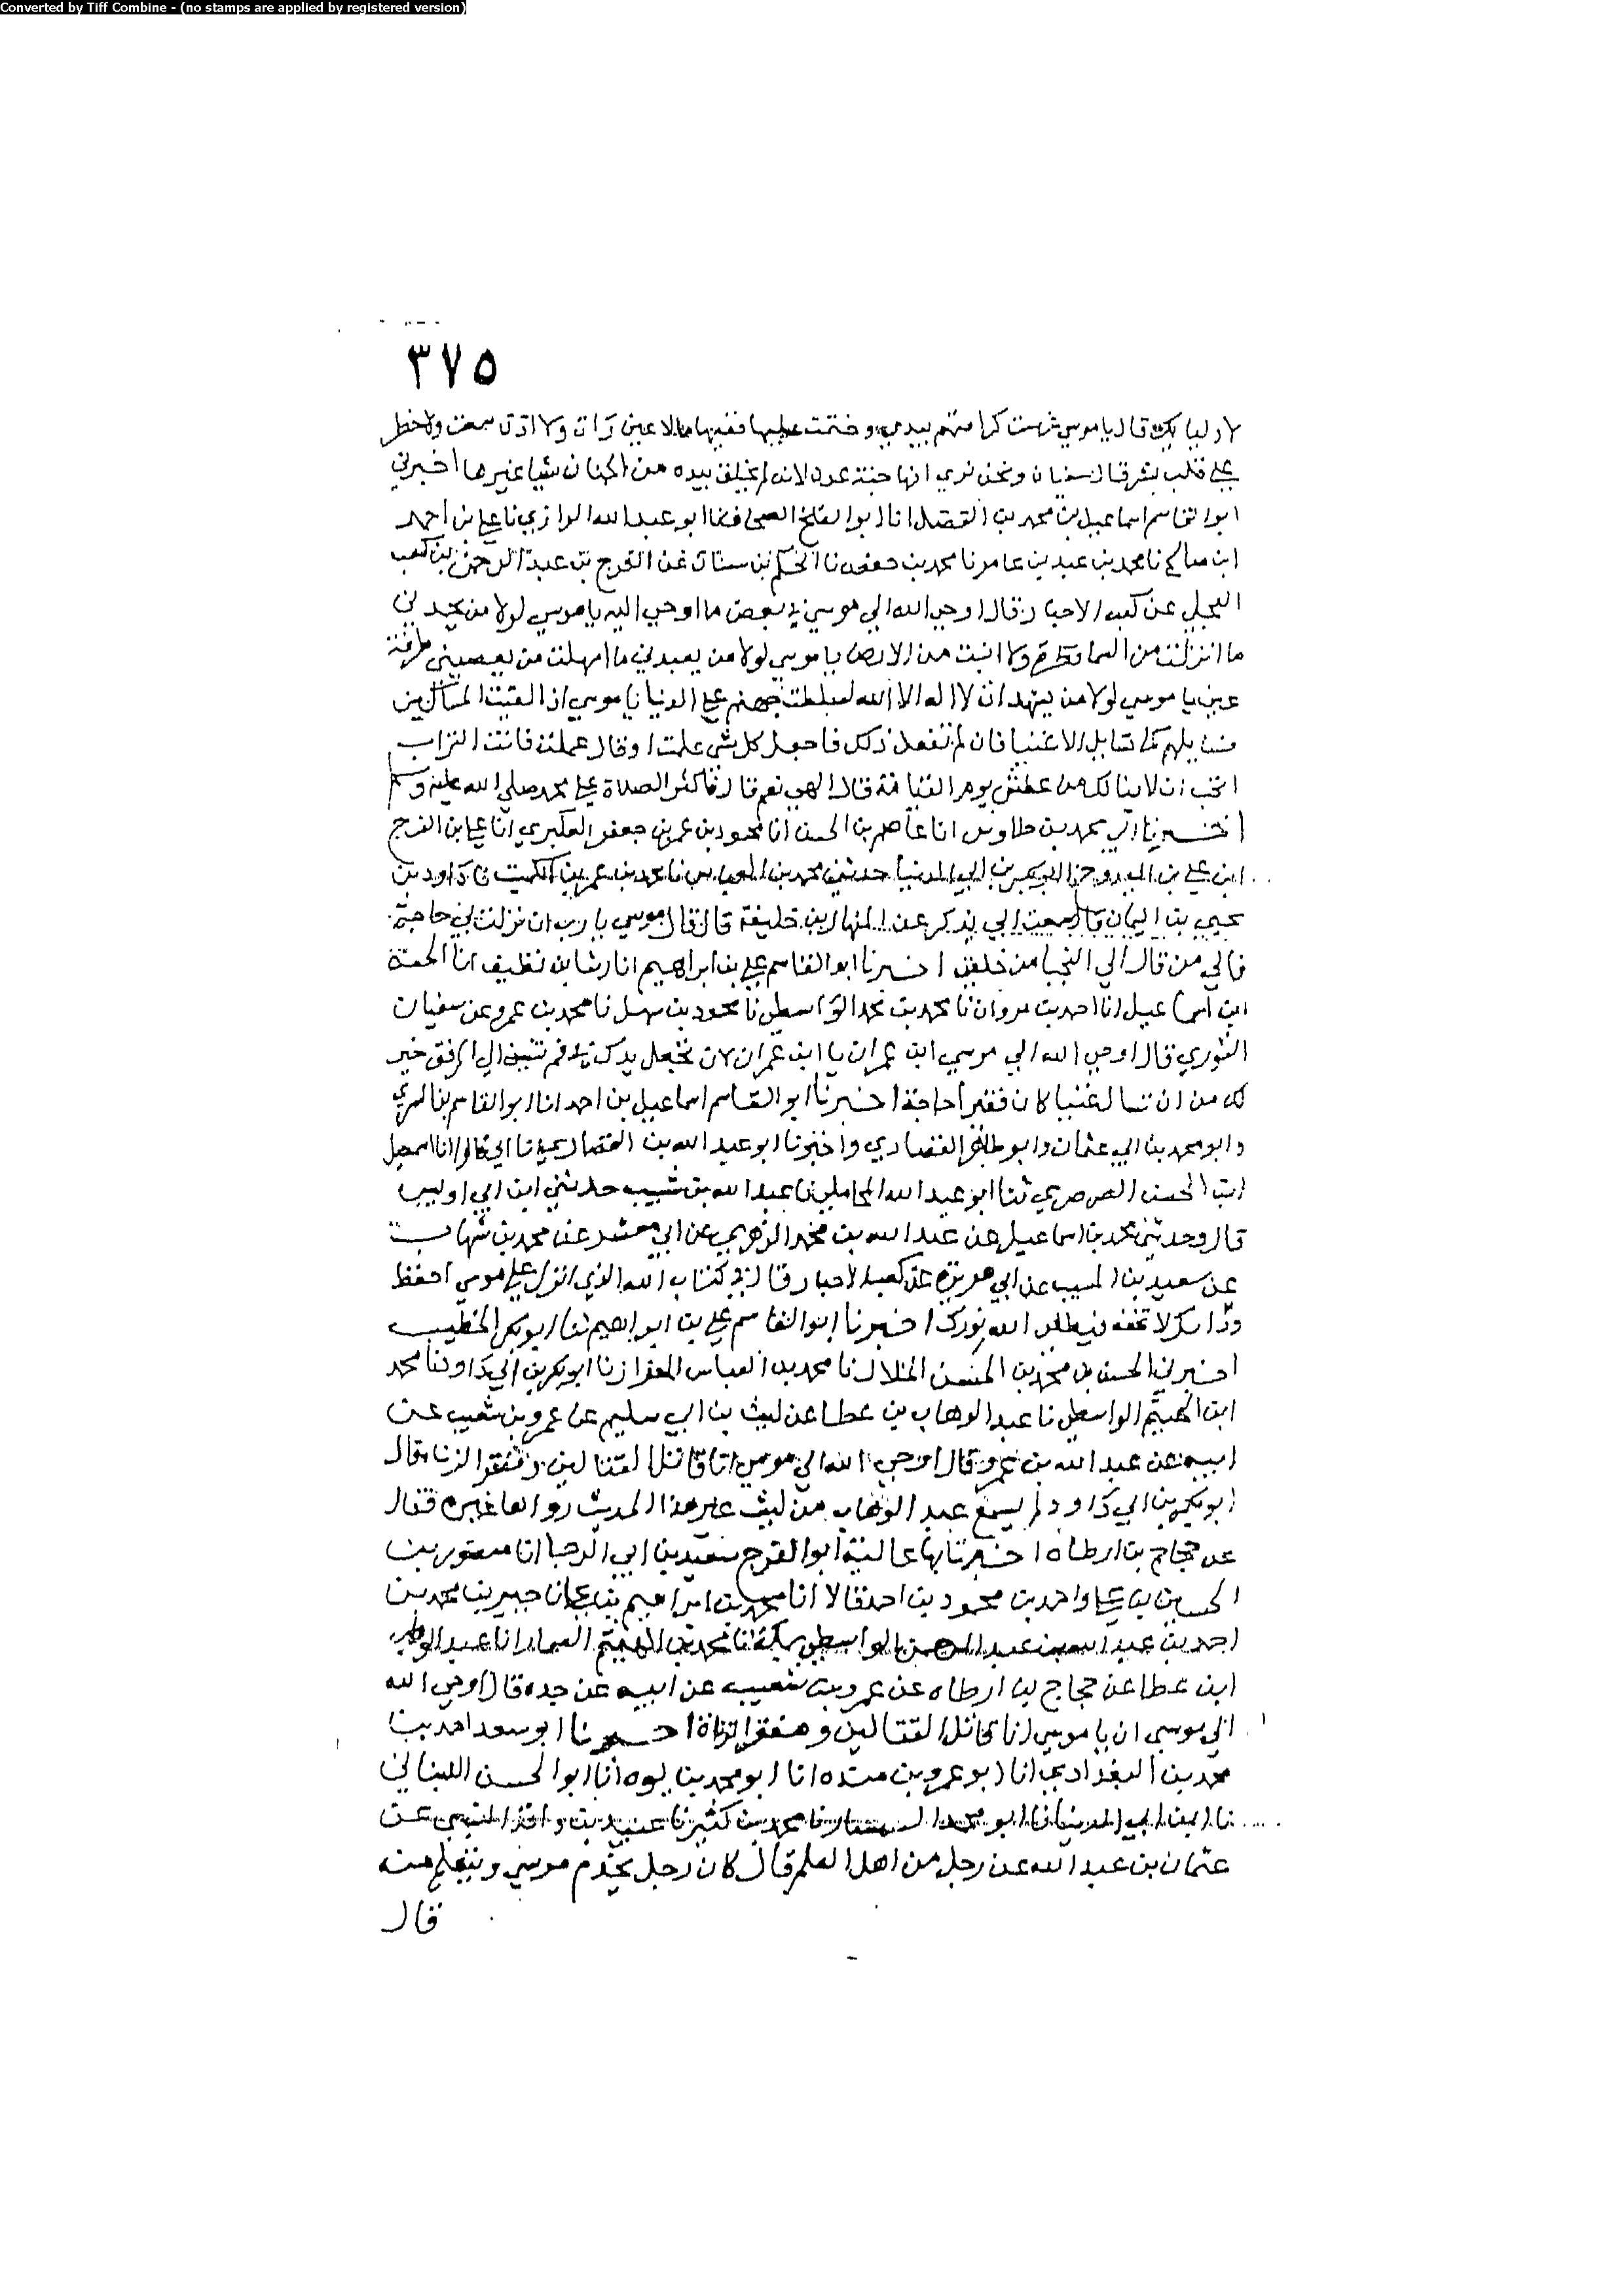 Converted by Tiff Combine - (no stamps are applied by registered version)
٣٧٥
لاوليايك قال يا موسي غرست كرامتهم بيدي وختمت عليها ففيها مالا عين رات ولا اذن سمعت ولا خطر
علي قلب بشر قال سفيان ونحن نري انها جنة عدن لانه لم يخلق بيده من الجنان شيا غيرها اخبرني
ابوالقاسم اسماعيل بن محمد بن الفضل انا ابوا الفتح الصحاف انا ابو عبدالله الرازي نا علي بن احمد
ابن صالح نا محمد بن عبد بن عامر نا محمد بن جعفر نا الحكم بن سنان عن الفرج بن عبد الرحمن بن كعب
البجلي عن كعب الاحبار قال اوحي الله الي موسي في بعض ما اوحي اليه يا موسي لولا من يحمدني
ما انزلت من السما قطرة ولا انبت من الارض يا موسي لولا من يعبدني ما امهلت من يعصيني طرفة
عين يا موسي لولا من يشهد ان لا اله الا الله لسلطت جهنم علي الدنيا يا موسي اذا لقيت المساكين
فسايلهم كما تسايل الاغنيا فان لم تفعل ذلك فاجعل كل شي علمت او قال عملت فانت التراب
اتحب ان لا ينالك من عطش يوم القيامة قال الهي نعم قال فاكثر الصلاة علي محمد صلي الله عليه وسلم
اخبرنا ابي محمد بن طاوس انا عاصم بن الحسن انا محمود بن عمر بن جعفر العكبري انا علي بن الفرج
ابن علي بن ابي روح نا ابو بكر بن ابي الدنيا حدثني محمد بن العباس نا محمد بن عمر بن الكميت نا داود بن
يحيي بن اليمان قال سمعت ابي يذكر عن المنهال بن خليفة قال قال موسي يا رب ان نزلت بي حاجة
فالي من قال الي النجبا من خلقي اخبرنا ابو القاسم علي بن ابراهيم انا رشا بن نظيف انا الحسن
ابن اسماعيل انا احمد بن مروان نا محمد بن محمد الواسطي نا محمود بن سهل نا محمد بن عمرو عن سفيان
الثوري قال اوحي الله الي موسي ابن عمران يا ابن عمران لان تجعل يدك في فم تنين الي المرفق خير
لك من ان تسال غنيا كان فقيرا حاجة اخبرنا ابو القاسم اسماعيل بن احمد انا ابو القاسم بن البسري
وابو محمد بن ابي عثمان وابو طاهر القصاري واخبرنا ابو عبد الله بن القصاري انا ابي قالوا انا اسمعيل
ابن الحسن الصرصري ثنا ابو عبد الله المحاملي نا عبد الله بن شبيب حدثني ابن ابي اويس
قال وحدثني محمد بن اسماعيل عن عبد الله بن محمد الزهري عن ابي معشر عن محمد بن شهاب
عن سعيد بن المسيب عن ابي هريرة عن كعب الاحبار قال في كتاب الله الذي انزل علي موسي احفظ
ود ابيك لا تجفه فيطفي الله نورك اخبرنا ابو القاسم علي بن ابراهيم ثنا ابو بكر الخطيب
اخبرني الحسن بن محمد بن الحسن الخلال نا محمد بن العباس الخزاز نا ابو بكر بن ابي داود نا محمد
ابن الهيثم الواسطي نا عبد الوهاب بن عطا عن ليث بن ابي سليم عن عمرو بن شعيب عن
ابيه عن عبد الله بن عمرو قال اوحي الله الي موسي انا قاتل القتالين ومفقر الزنا قال
ابو بكر بن ابي داود لم يسمع عبد الوهاب من ليث غير هذا الحديث رواها غيره فقال
عن حجاج بن ارطاه اخبرتنا بها عالية ابوا الفرج سعيد بن ابي الرجا انا منصور بن
الحسين بن علي واحمد بن محمود بن احمد قالا انا محمد بن ابراهيم بن علي نا جبير بن محمد بن
احمد بن عبد الله بن عبد الرحمن الواسطي بمكة نا محمد بن الهيثم السمار انا عبد الوهاب
ابن عطا عن حجاج بن ارطاه عن عمرو بن شعيب عن ابيه عن جده قال اوحي الله
الي موسي ان يا موسي انا قاتل القتالين ومفقر الزناة اخبرنا ابو سعد احمد بن
محمد بن البغدادي انا ابو عمرو بن منده انا ابو محمد بن يوه انا ابوا الحسن اللبناني
نا ابن ابي الدنيا نا ابو محمد البزار نا محمد بن كثير نا عبيد بن واقد القيسي عن
عثمان بن عبد الله عن رجل من اهل العلم قال كان رجل يخدم موسي ويتعلم منه
قال